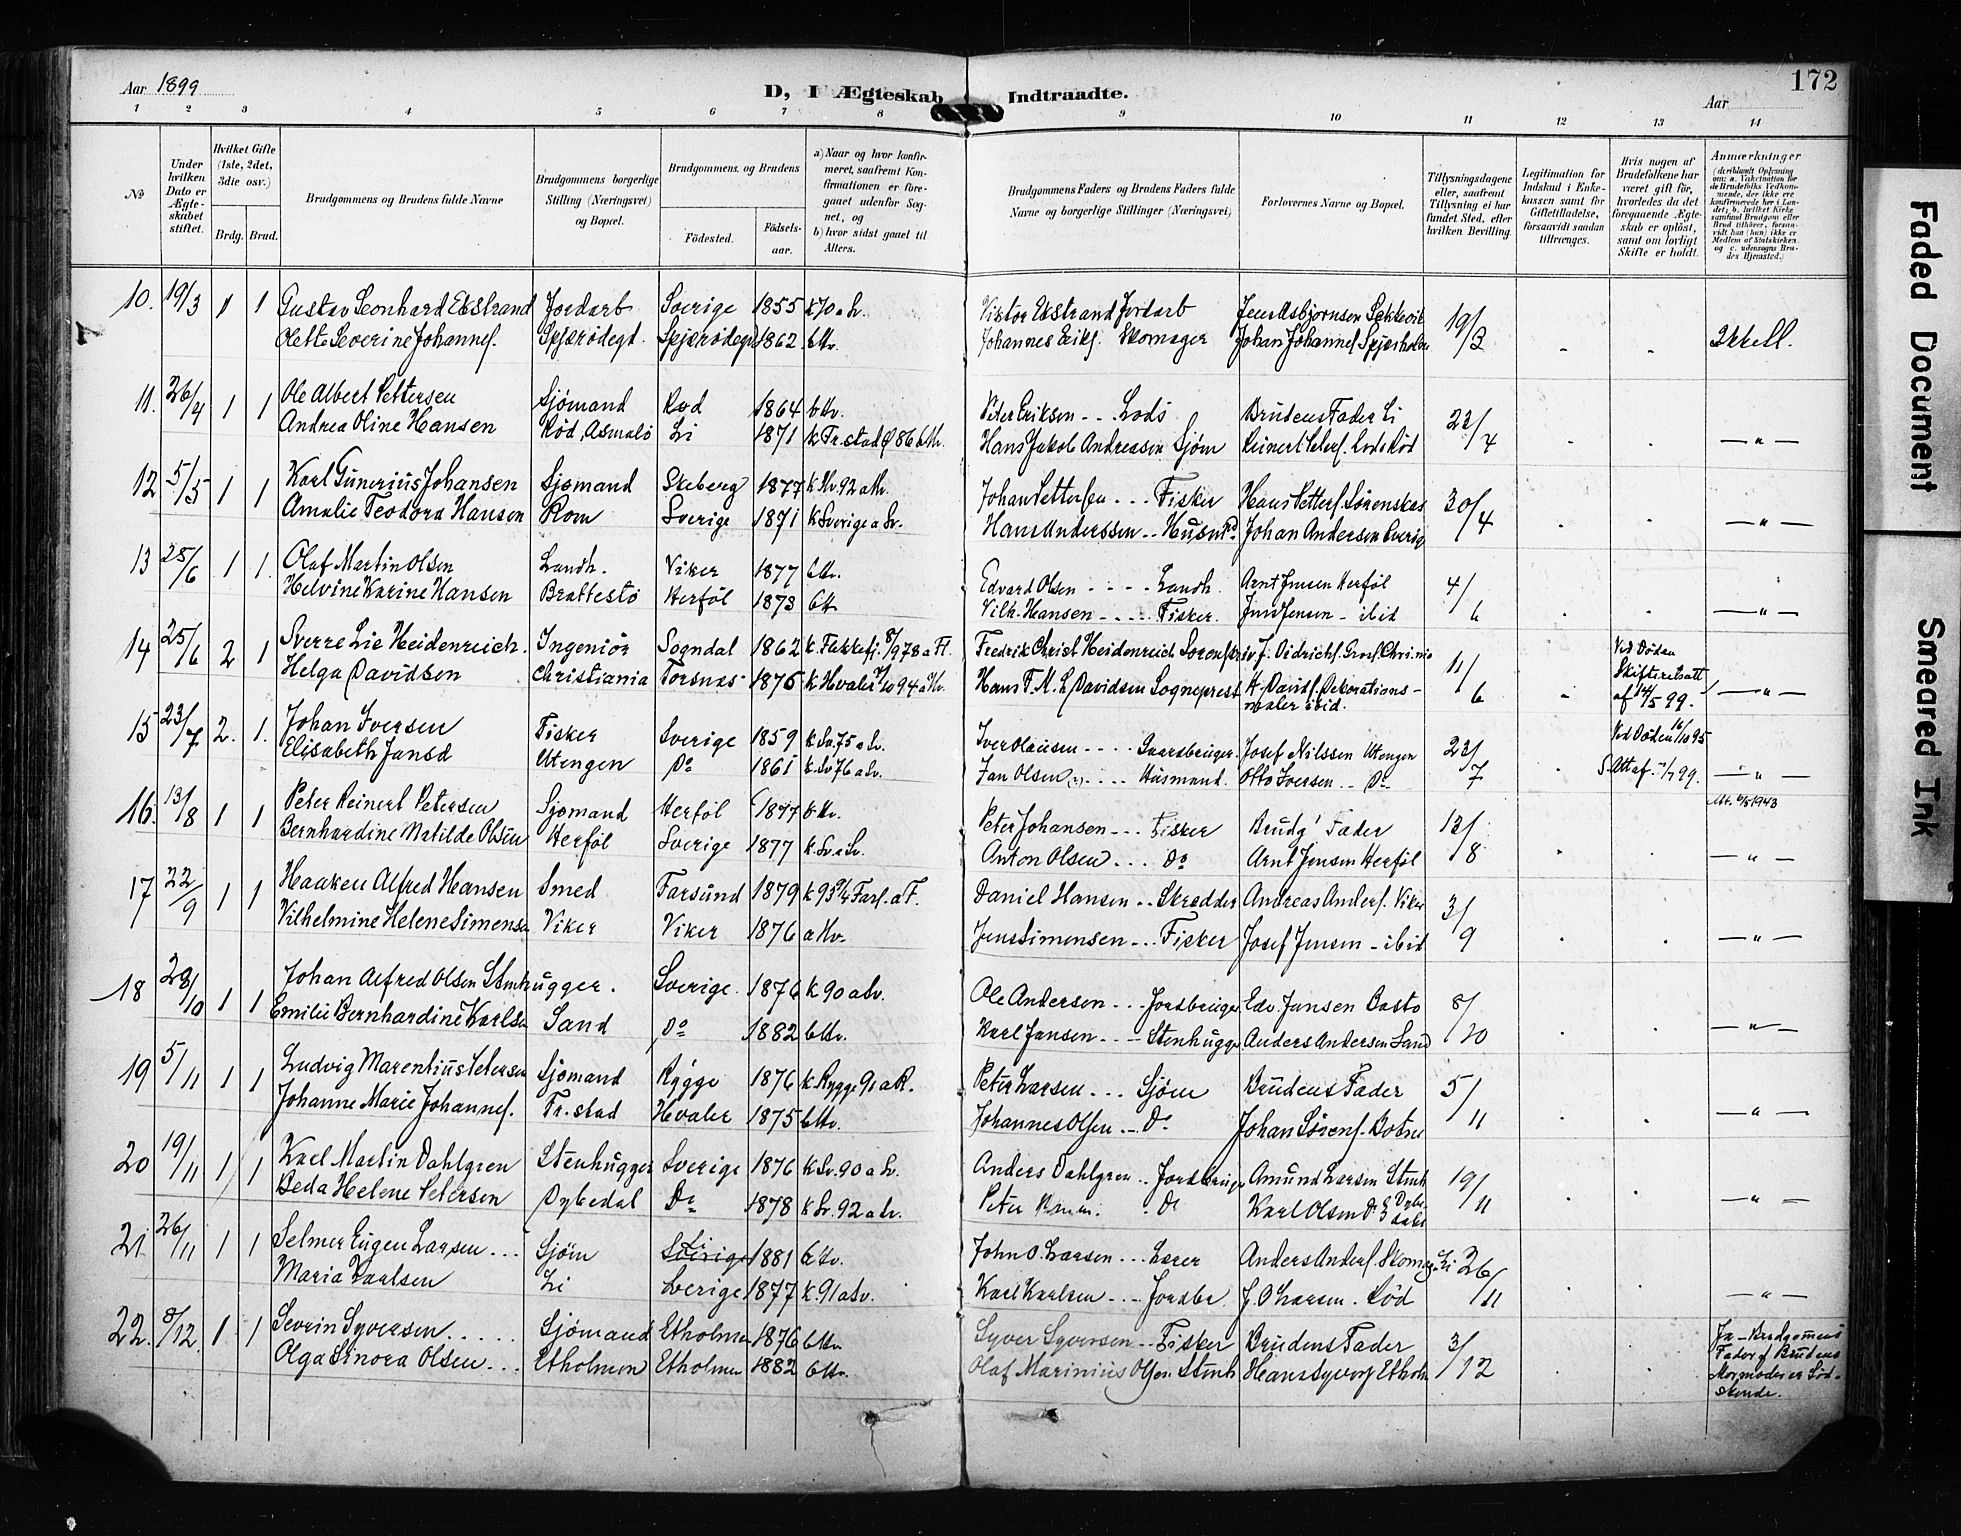 172
Aar 1899
D, I Ægteskab Indtraadte.
Aar
1 2 3 4 5 6 7 8 9 10 11 12 13 14
№
Under hvilken Dato er Ægteskabet stiftet.
Hvilket Gifte (1ste, 2det, 3die osv.)
Brdg. Brud.
Brudgommens og Brudens fulde Navne
Brudgommens borgerlige Stilling (Næringsvei) og Bopæl.
Brudgommens og Brudens
Fødested.
Fødselsaar.
a) Naar og hvor konfirmeret, saafremt Konfirmationen er foregaaet udenfor Sognet, og
b) hvor sidst gaaet til Alters.
Brudgommens Faders og Brudens Faders fulde Navne og borgerlige Stillinger (Næringsvei)
Forlovernes Navne og Bopæl.
Tillysningsdagene eller, saafremt Tillysning ei har fundet Sted, efter hvilken Bevilling.
Legitimation for Indskud i Enkekassen samt for Giftetilladelse, forsaavidt saadan tiltrænges.
Hvis nogen af Brudefolkene har været gift før, hvorledes da det foregaaende Ægteskab er opløst, samt om lovligt Skifte er holdt.
Anmærkninger
10. 19/3 1 1 Gustav Leonhard Ekstrand Jordarb Sverige 1855 Viktor Ekstrand Jordarb Jens Asbjørnsen 19/3
Severine Johannes. 1862 b Hv. Johannes Eriks. Skomager Johan Johannes.
11. 26/4 1 1 Ole Albert Pettersen Sjømand Rød 1864 b Hv. Peter Eriksen - - Lods Brudens Fader Li 23/4
Andrea Oline Hansen Rød, Asmalø Li 1871 k Fr.stad 86 b Hv. Hans Jakob Andreasen Sjøm Reinert Peters. Lods Rød — " —
12 5/5 1 1 Karl Gunerius Johansen Sjømand Skeberg 1877 k Hv 92 a Hv. Johan Pettersen - - - Fisker Hans Petters. 30/4
Amalie Teodora Hansen Rom Sverige 1871 k Sverige a Sv. Hans Anderssen - - Husmd Johan Andersen — " —
13 25/6 1 1. Olaf Martin Olsen Landh. Viker 1877 b Hv. Edvard Olsen - - - - Landh. Arnt Jensen Herføl 4/6
Helvine Karine Hansen Brattestø Herføl 1873 b Hv Vilh. Hansen - - - - Fisker. Jens Jensen - ibid — " —
14 25/6 2 1 Sverre Lie Heidenreich. Ingeniør Sogndal 1862 Fredrik Christ Heidenreich 11/6 Ved Døden Skifteretsatt af 14/5 99.
Helga Davidsen Christiania Torsnæs 1875 k Hvaler 94 a Hv. Hans F. M. L Davidsen Sogneprest H. Davids. Dekorationsmaler ibid. — " —
15 23/7 2. 1. Johan Iversen Fisker Sverige 1859 k Sv. 75 a Sv. Iver Olaussen - - - - Gaardbruger. Josef Nilssen Utengen 23/7 Ved Døden 95
Elisabeth Jansd Utengen Do 1861 k Sv 76 a Sv. Jan Olsen - - - - Husmand. Otto Iversen - - Do — " —
16. 13/8 1 1 Peter Reinert Petersen Sjømand Herføl 1877 b Hv. Peter Johansen - - - Fisker Brudg' Fader 13/8 1943
Bernhardine Matilde Olsen Herføl Sverige 1877 k Sv a Sv. Anton Olsen - - - Do Arnt Jensen Herføl — " —
17 22/9 1 1 Haaken Alfred Hansen Smed Farsund 1879 Daniel Hansen - - Skredder Andreas Anders. Viker 3/9
Vilhelmine Helene Simensen Viker Viker 1876 a Hv. Jens Simensen - - - Fisker Josef Jensen - ibid — " —
18 29/10 1 1 Johan Alfred Olsen Stenhugger. Sverige. 1876 k 90 a Sv. Ole Andersen - - - Jordbruger Edv. Jansen Basto 8/10
Emilie Bernhardine Karlsen Sand Do 1882 b Hv. Karl Jansen - - - Stenhugger. Anders Andersen Sand — " —
19 5/11 1 1 Ludvig Marentius Petersen Sjømand Rygge 1876 k Rygge 91 a R. Peter Larsen - - - Sjøm Brudens Fader 5/11
Johanne Marie Johannes. Fr.stad Hvaler 1875 b Hv. Johannes Olsen - - Do Johan Sørens. Botne — " —
20 19/11 1 1 Karl Martin Dahlgren Stenhugger Sverige 1876 k Sv. 90 a Sv. Anders Dahlgren - - Jordbruger Amund Larsen Stenh 19/11
Beda Helene Petersen Dybedal Do 1878 k Sv. 92 a Sv. Peter Do Karl Olsen Do Dybedal — " —
21 26/11 1 1 Selmer Eugen Larsen - - - Sjøm Li 1881 b Hv. John O. Larsen - - - Lærer Anders Anders. Skomag. Li 26/11
Maria Karlsen Li Sverige 1877 k. 91 a Sv. Karl Karlsen - - - Jordbr. J. O Larsen - Rød — " —
22. 8/12. 1 1 Sevrin Syversen - - - - - Sjømand Etholmen 1876 b Hv Syver Syversen - - Fisker Brudens Fader 3/12 Ja - Brudgommens Fader og Brudens Mormoder er Sødskende.
Olga Sinora Olsen - - - Etholmen Etholmen 1882 b Hv. Olaf Marinius Olsen Stenh Hans Syvers Etholm
Faded Document
Smeared Ink